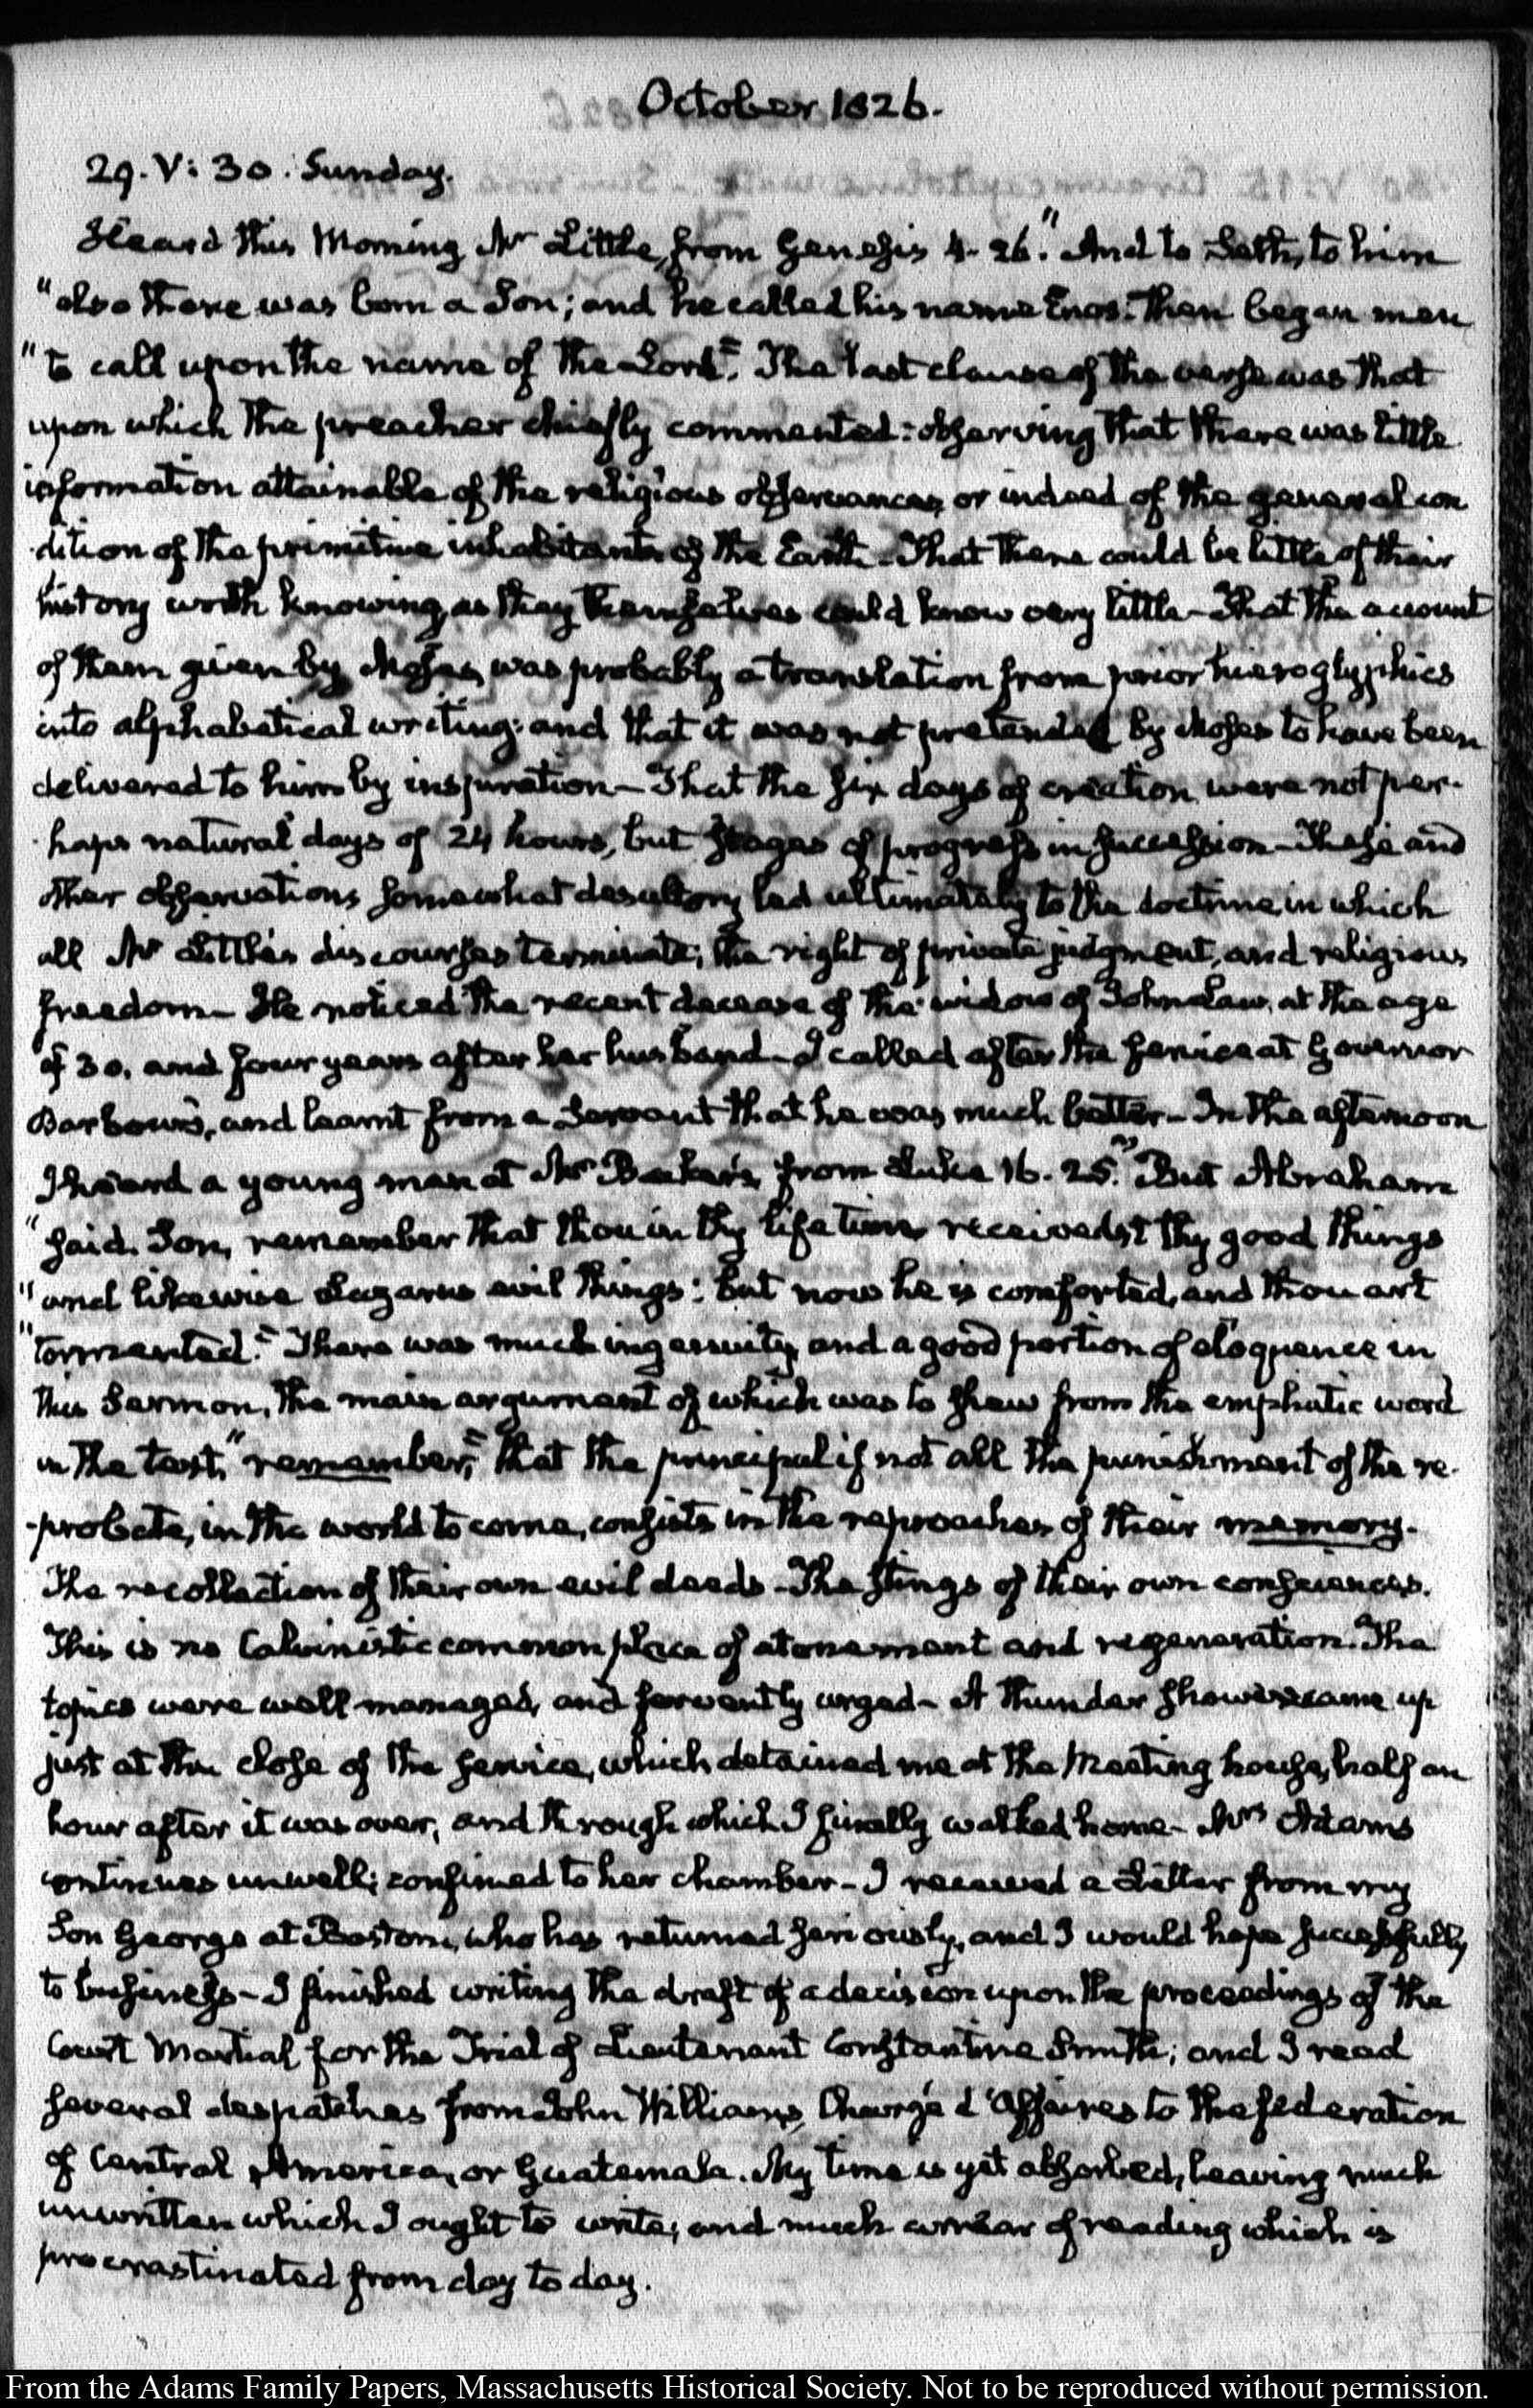 October 1826.
29. V: 30. Sunday.
Heard this Morning Mr Little, from Genesis 4. 26. "And to Seth, to him
"also there was born a Son; and he called his name Enos. Then began men
"to call upon the name of the Lord". The last clause of the verse was that
upon which the preacher chiefly commented: observing that there was little
information attainable of the religious observances, or indeed of the general con
dition of the primitive inhabitants of the Earth. That there could be little of their
history worth knowing, as they themselves could know very little— That the account
of them given by Moses, was probably a translation from prior hieroglyphics
into alphabetical writing; and that it was not pretended by Moses to have been
delivered to him by inspiration— That the six days of creation were not per-
haps natural days of 24 hours, but stages of progress in succession— These and
other observations somewhat desultory led ultimately to the doctrine in which
all Mr Little's discourses terminate; the right of private judgment, and religious
freedom— He noticed the recent decease of the widow of John Law, at the age
of 30. and four years after her husband— I called after the service at Governor
Barbour's, and learnt from a Servant that he was much better— In the afternoon
I heard a young man at Mr Baker's, from Luke 16. 25. "But Abraham
"said. Son, remember that thou in thy life time receivedst thy good things
"and likewise Lazarus evil things: but now he is comforted, and thou art
"tormented." There was much ingenuity, and a good portion of eloquence in
this Sermon, the main argument of which was to shew from the emphatic word
in the text, "remember," that the principal if not all the punishment of the re-
-probate, in the world to come, consists in the reproaches of their memory.
The recollection of their own evil deeds— The stings of their own consciences.
This is no Calvinistic common place of atonement and regeneration. The
topics were well managed, and fervently urged— A thunder shower came up
just at the close of the service, which detained me at the Meeting house, half an
hour after it was over, and through which I finally walked home— Mrs Adams
continues unwell; confined to her chamber— I received a Letter from my
Son George at Boston, who has returned seriously, and I would hope successfully
to business— I finished writing the draft of a decision upon the proceedings of the
Court Martial for the Trial of Lieutenant Constantine Smith; and I read
several despatches from John Williams, Chargé d'Affaires to the federation
of Central America, or Guatemala. My time is yet absorbed, leaving much
unwritten which I ought to write; and much arrear of reading which is
procrastinated from day to day.
From the Adams Family Papers, Massachusetts Historical Society. Not to be reproduced without permission.